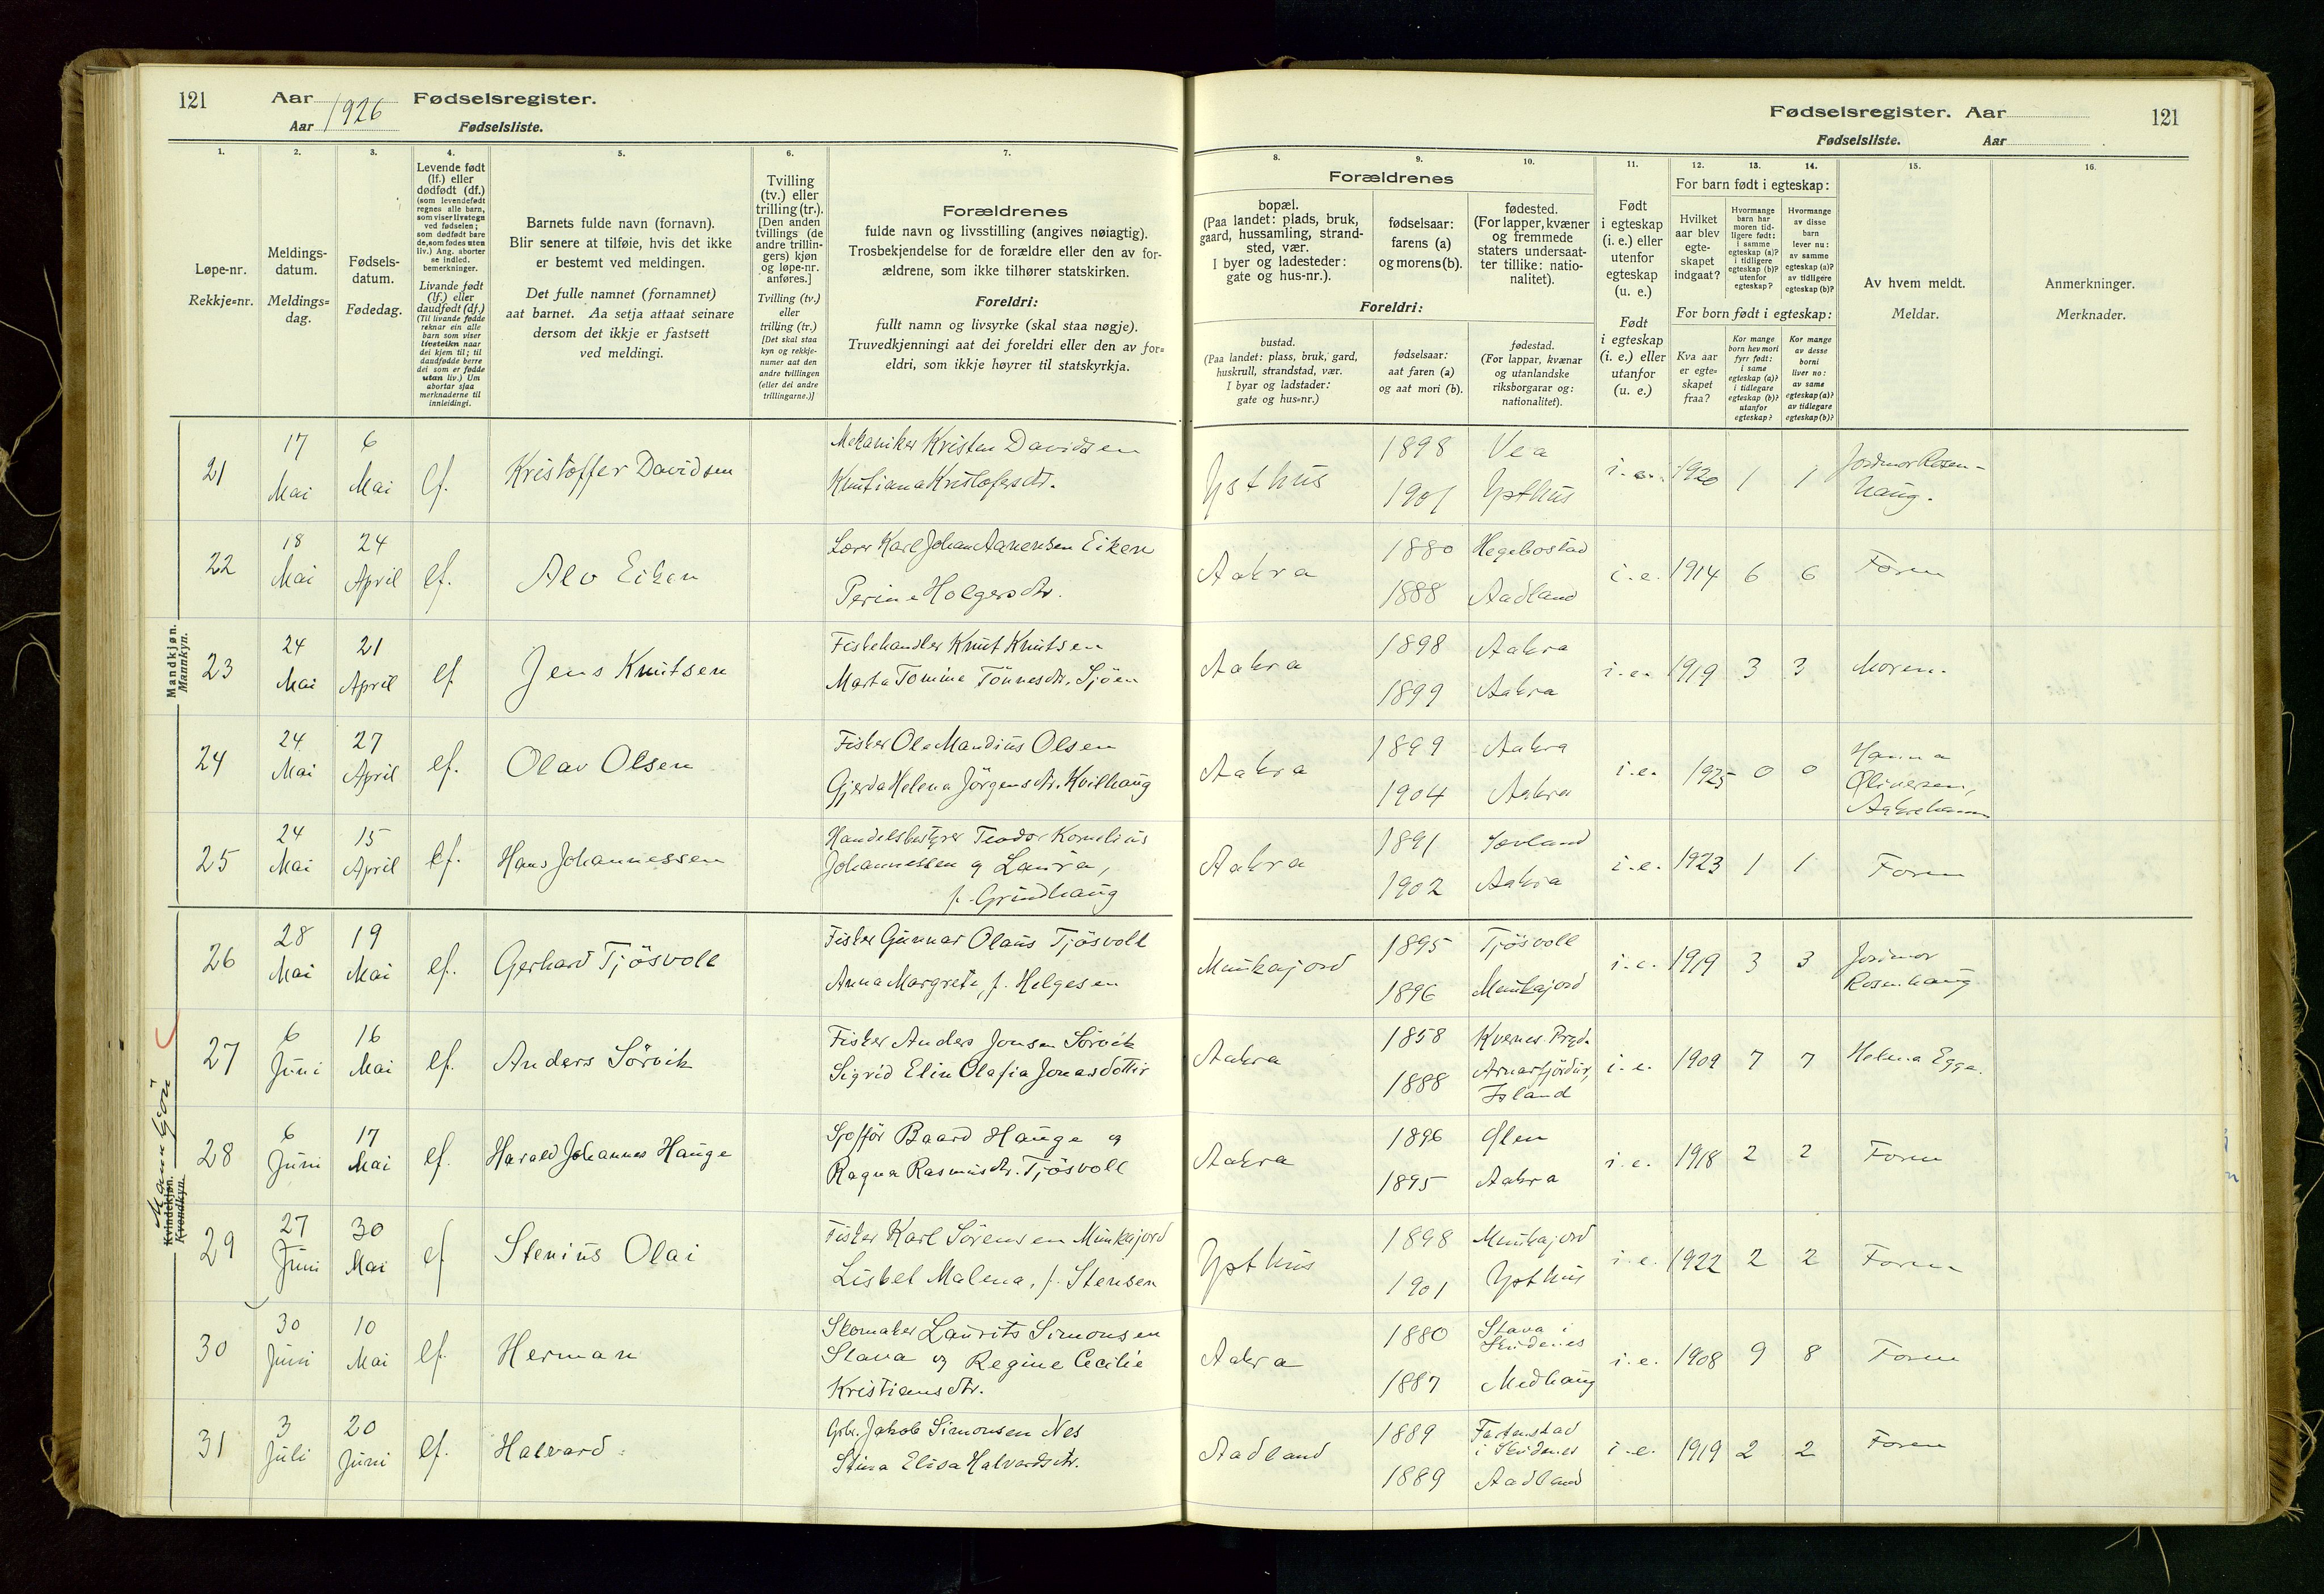 121 Aar 1926 Fødselsregister.
Aar Fødselsliste.
Fødselsregister. Aar 121
Fødselsliste. Aar
1. 2. 3. 4. 5. 6. 7. 8. 9. 10. 11. 12. 13. 14. 15. 16.
Løpe-nr.
Rekkje=nr.
Meldings-
datum.
Meldings=
dag.
Fødsels-
datum.
Fødedag.
Levende født
(lf.) eller
dødfødt (df.)
(som levendefødt
regnes alle barn,
som viser livstegn
ved fødselen;
som dødfødt bare
de, som fødes uten
liv.) Ang. aborter
se indled.
bemerkninger.
Livande født
(lf.) eller
daudfødt (df.)
(Til livande fødde
reknar ein alle
barn som viser
livsteikn naar
dei kjem til; til
daudfødde berre
dei som er fødde
utan liv.) Um
abortar sjaa
merknaderne til
innleidingi.
Barnets fulde navn (fornavn).
Blir senere at tilføie, hvis det ikke
er bestemt ved meldingen.
Det fulle namnet (fornamnet)
aat barnet. Aa setja attaat seinare
dersom det ikkje er fastsett
ved meldingi.
Tvilling
(tv.) eller
trilling (tr.).
[Den anden
tvillings (de
andre trillin-
gers) kjøn
og løpe-nr.
anføres.]
Tvilling (tv.)
eller
trilling (tr.)
[Det skal staa
kyn og rekkje-
numer aat den
andre tvillingen
(eller dei andre
trillingarne.)]
Forældrenes
fulde navn og livsstilling (angives nøiagtig).
Trosbekjendelse for de forældre eller den av for-
ældrene, som ikke tilhører statskirken.
Foreldri:
fullt namn og livsyrke (skal staa nøgje).
Truvedkjenningi aat dei foreldri eller den av for=
eldri, som ikkje høyrer til statskyrkja.
Forældrenes
bopæl.
(Paa landet: plads, bruk,
gaard, hussamling, strand-
sted, vær.
I byer og ladesteder:
gate og hus-nr.).
fødselsaar:
farens (a)
og morens (b).
fødested.
(For lapper, kvæner
og fremmede
staters undersaat-
ter tillike: natio-
nalitet).
Foreldri:
bustad.
(Paa landet: plass, bruk, gard,
huskrull, strandstad, vær.
I byar og ladstader:
gate og hus=nr.)
fødselsaar:
aat faren (a)
og aat mori (b).
fødestad.
(For lappar, kvænar
og utanlandske
riksborgarar og:
nationalitet).
Født
i egteskap
(i. e.) eller
utenfor
egteskap
(u. e.)
Født
i egteskap
(i. e.) eller
utanfor
(u. e.)
For barn født i egteskap:
Hvilket
aar blev
egte-
skapet
indgaat?
Hvormange
barn har
moren tid-
ligere født:
i samme
egteskap (a)?
i tidligere
egteskap (b)?
utenfor
egteskap?
Hvormange
av disse
barn
lever nu:
av samme
egteskap (a)?
av tidligere
egteskap (b)?
For born født i egteskap:
Kva aar
er egte=
skapet
fraa?
Kor mange
born hev mori
fyrr født:
i same
egteskap (a)?
i tidlegare
egteskap (b)?
utanfor
egteskap?
Kor mange
av desse
borni
liver no:
av same
egteskap (a)?
av tidlegare
egteskap (b)?
Av hvem meldt.
Meldar.
Anmerkninger.
Merknader.
Mandkjøn.
Mannkyn.
21 17 Mai 6 Mai lf. Kristoffer Davidsen Mekaniker Kristen Davidsen
Kristoffersdtr. 1898 Vea
1901 i.e. 1920 1 1
22 18 Mai 24 April lf. Alv Eiken Lærer Karl Johan Aanensen Eiken
Perine Holgersdtr. Aakra 1880 Hegebostad
1888 Aadland i.e. 1914 6 6 Faren
23 24 Mai 21 April lf Jens Knutsen Fiskehandler Knut Knutsen
Marta Tomine Tönnesdtr. Sjöen Aakra 1898 Aakra
1899 Aakra i.e. 1919 3 3 Moren.
24 24 Mai 27 April lf. Olav Olsen Fisker Ole Mandius Olsen
Gjerda Helena Jörgensdtr. Kvilhaug Aakra 1899 Aakra
1904 Aakra i.e. 1925 0 0 Hanna
Oliversen,
Aakrehamn
25 24 Mai 15 April lf. Hans Johannessen Handelsbestyrer Teodor Kornelius
Johannessen og Laura,
f. Grindhaug Aakra 1891 Sævland
1902 Aakra i.e. 1923 1 1 Faren
Mannkjön
Kvindekjøn.
Kvendkyn.
26 28 Mai 19 Mai lf. Gerhard Tjösvoll Fisker Gunnar Olaus Tjösvoll
Anna Margrete, f. Helgesen Munkajord 1895 Tjösvoll
1896 Munkajord i.e. 1919 3 3 Jordmor
Rosenhaug
27 6 Juni 16 Mai lf. Anders Sörvik Fisker Anders Jonsen Sörvik
Sigrid Elin Olafia Jonasdottir Aakra 1858 Kvernes Prgd.
1888 Arnarfjördur,
Island i.e. 1909 7 7 Helena Egge.
28 6 Juni 17 Mai lf. Harald Johannes Hauge Sjofför Baard Hauge og
Ragna Rasmusdtr. Tjösvoll Aakra 1896 Ølen
1895 Aakra i.e. 1918 2 2 Faren
29 27 Juni 30 Mai lf Stenius Olai Fisker Karl Sörensen Munkajord
Lisbet Malena, f. Stensen 1898 Munkajord
1901 i.e. 1922 2 2 Faren
30 30 Juni 10 Mai lf. Herman Skomaker Laurits Simonsen
Stava og Regine Cecilie
Kristiansdtr. Aakra 1880 Stava i
Skudenes
1887 Medhaug i.e. 1908 9 8 Faren
31 3 Juli 20 Juni lf. Halvard Gbr. Jakob Simonsen Nes
Stina Elisa Halvardsdtr. Aadland 1889
i Skudenes
1889 Aadland i.e. 1919 2 2 Faren